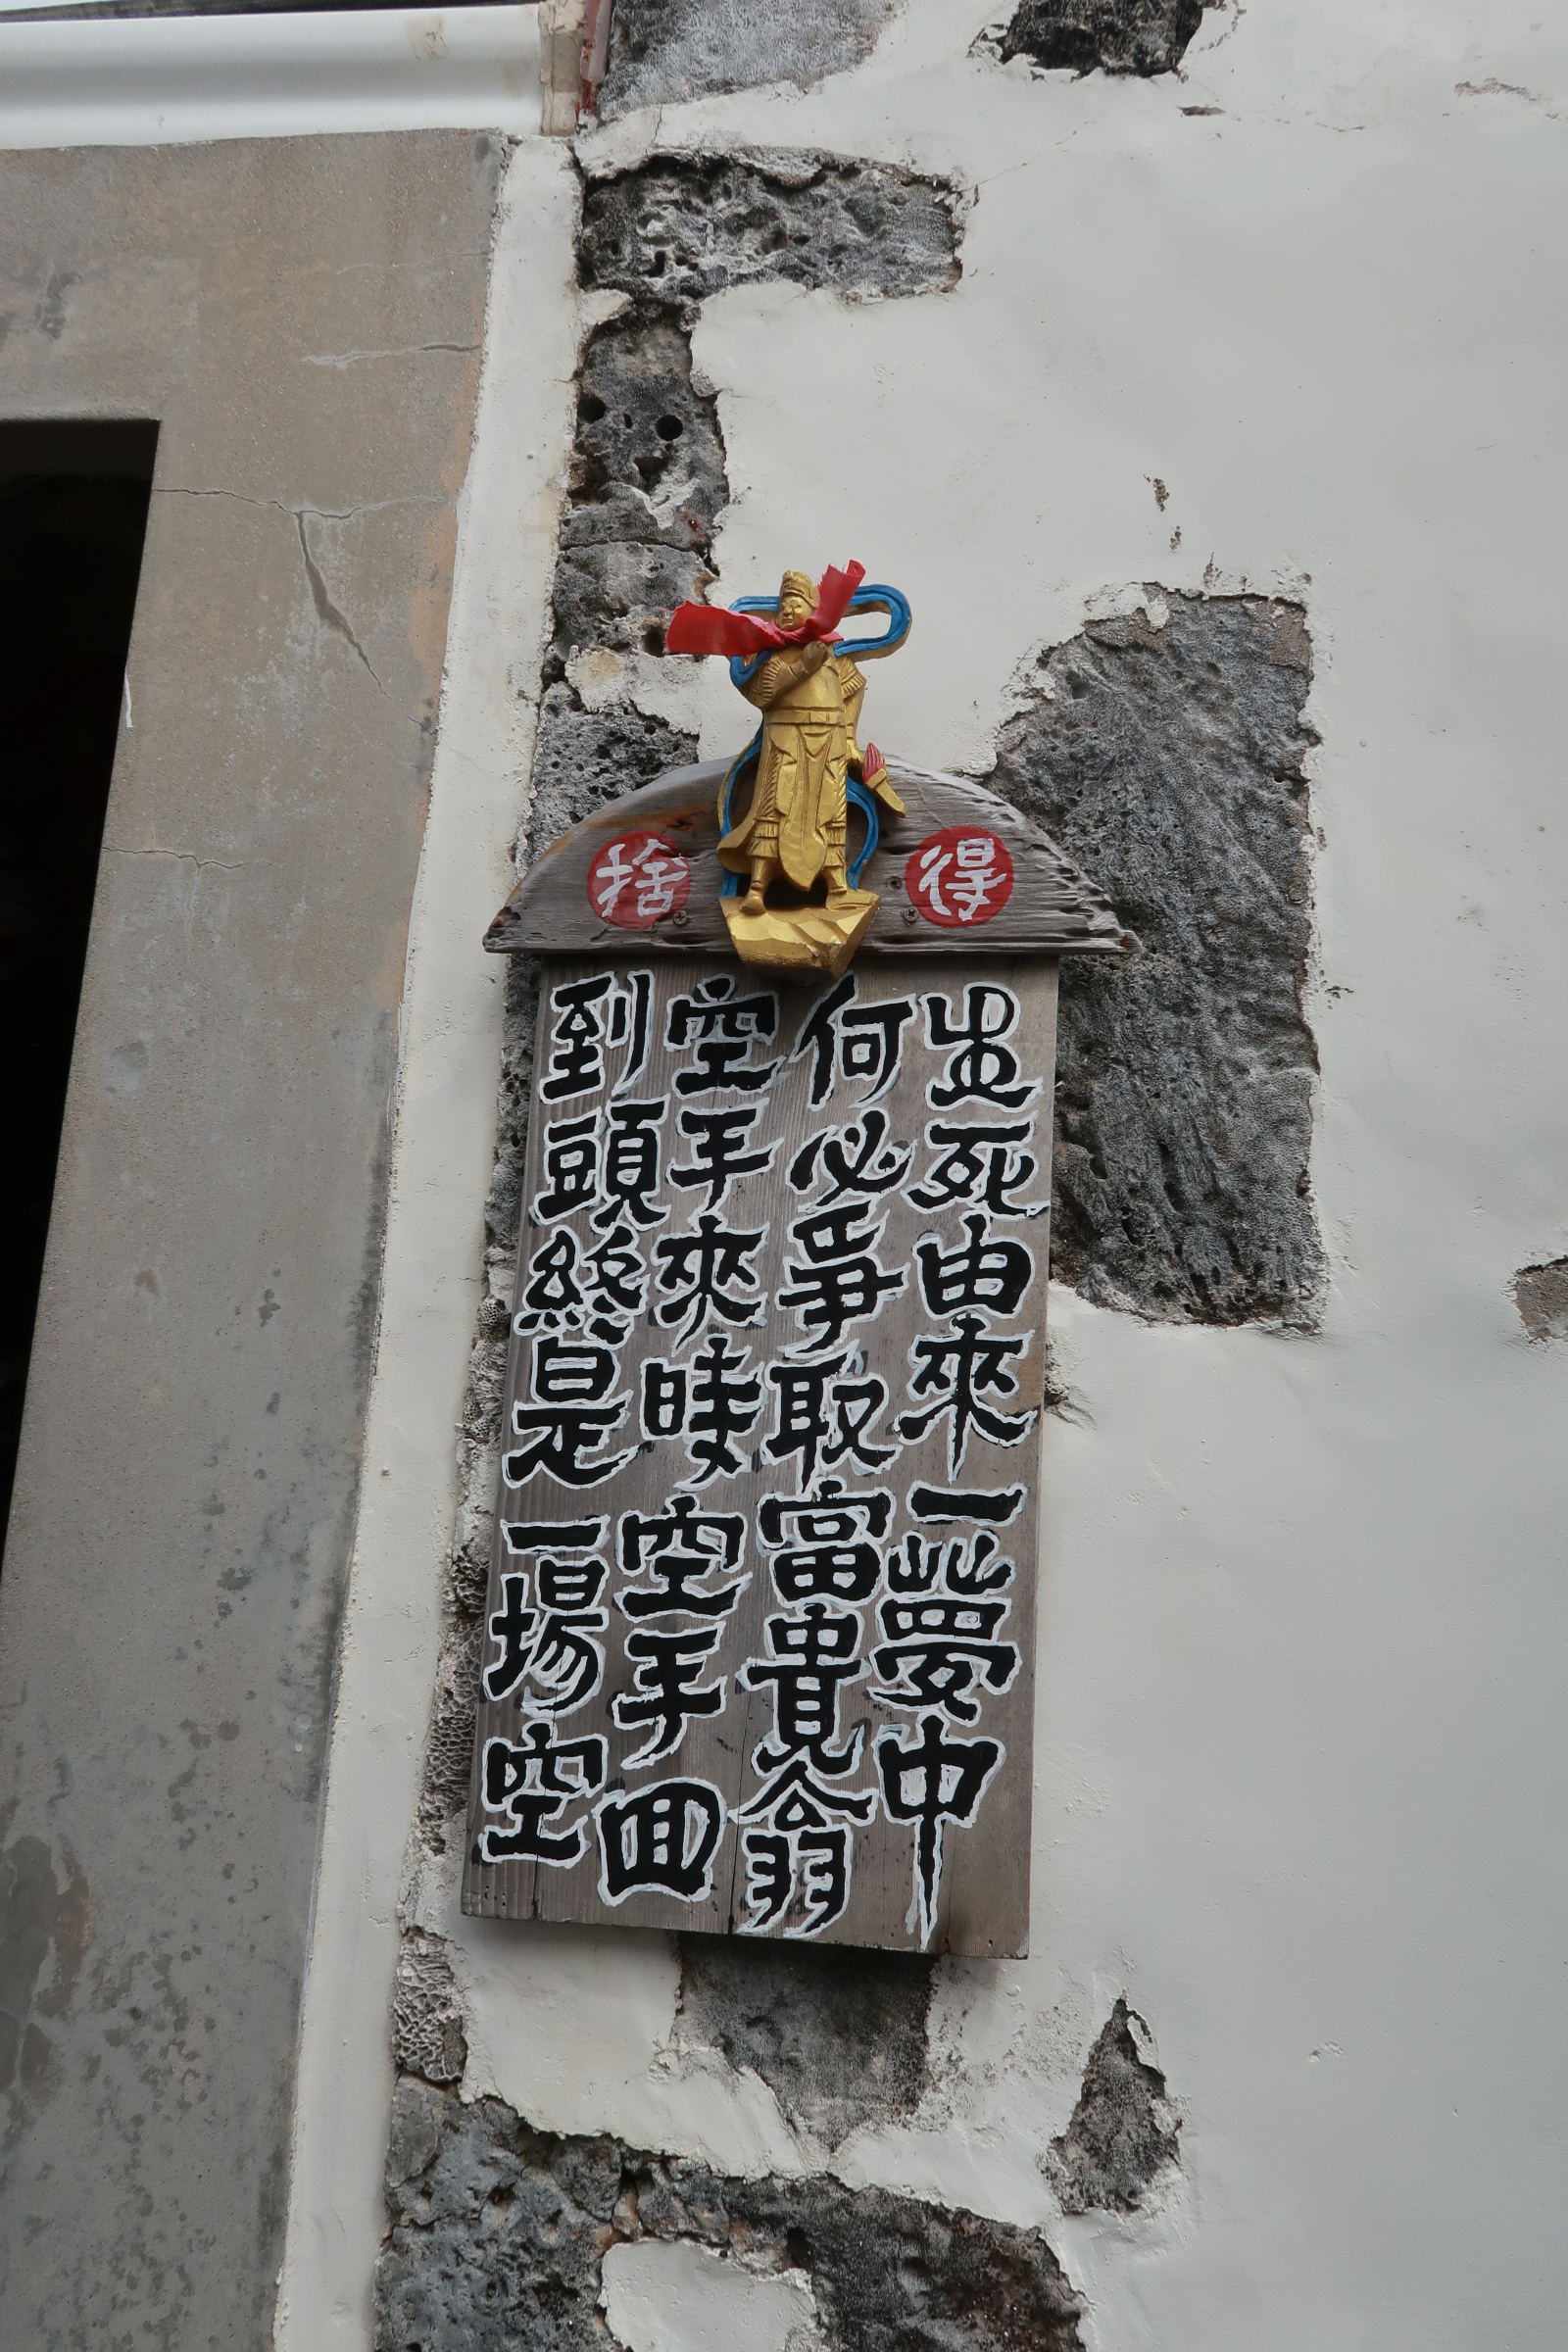 捨得
生死由來一夢中
何必爭取富貴翁
空手來時空手回
到頭終是一場空